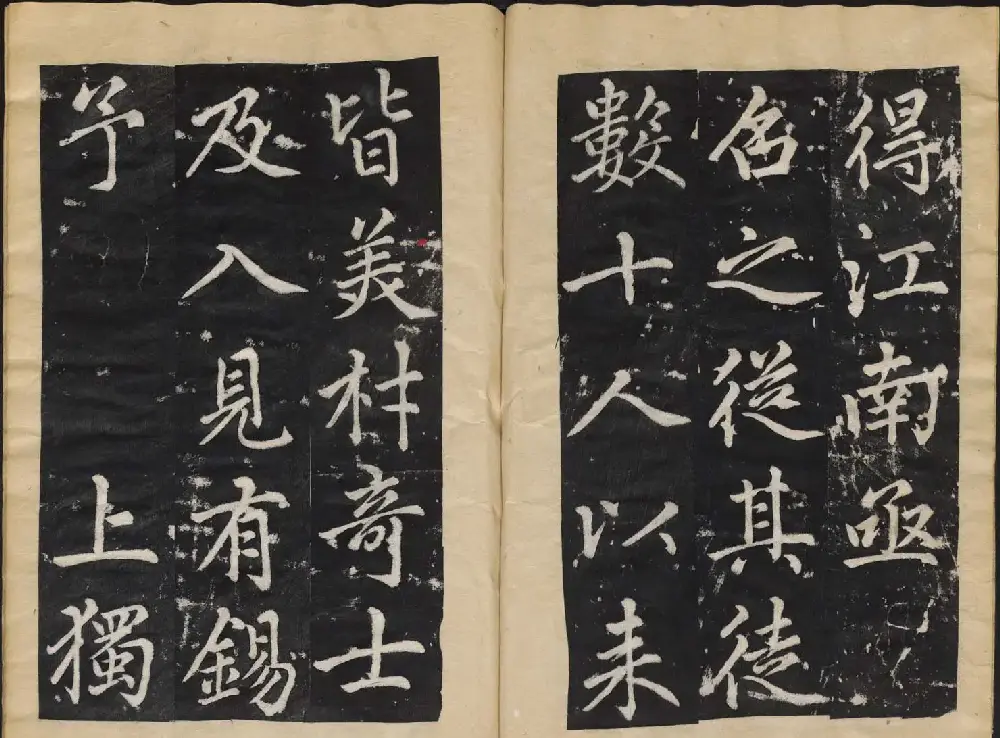 得江南亟
召之從其徒
數十人以来
皆美材竒士
及入見有錫
予上獨